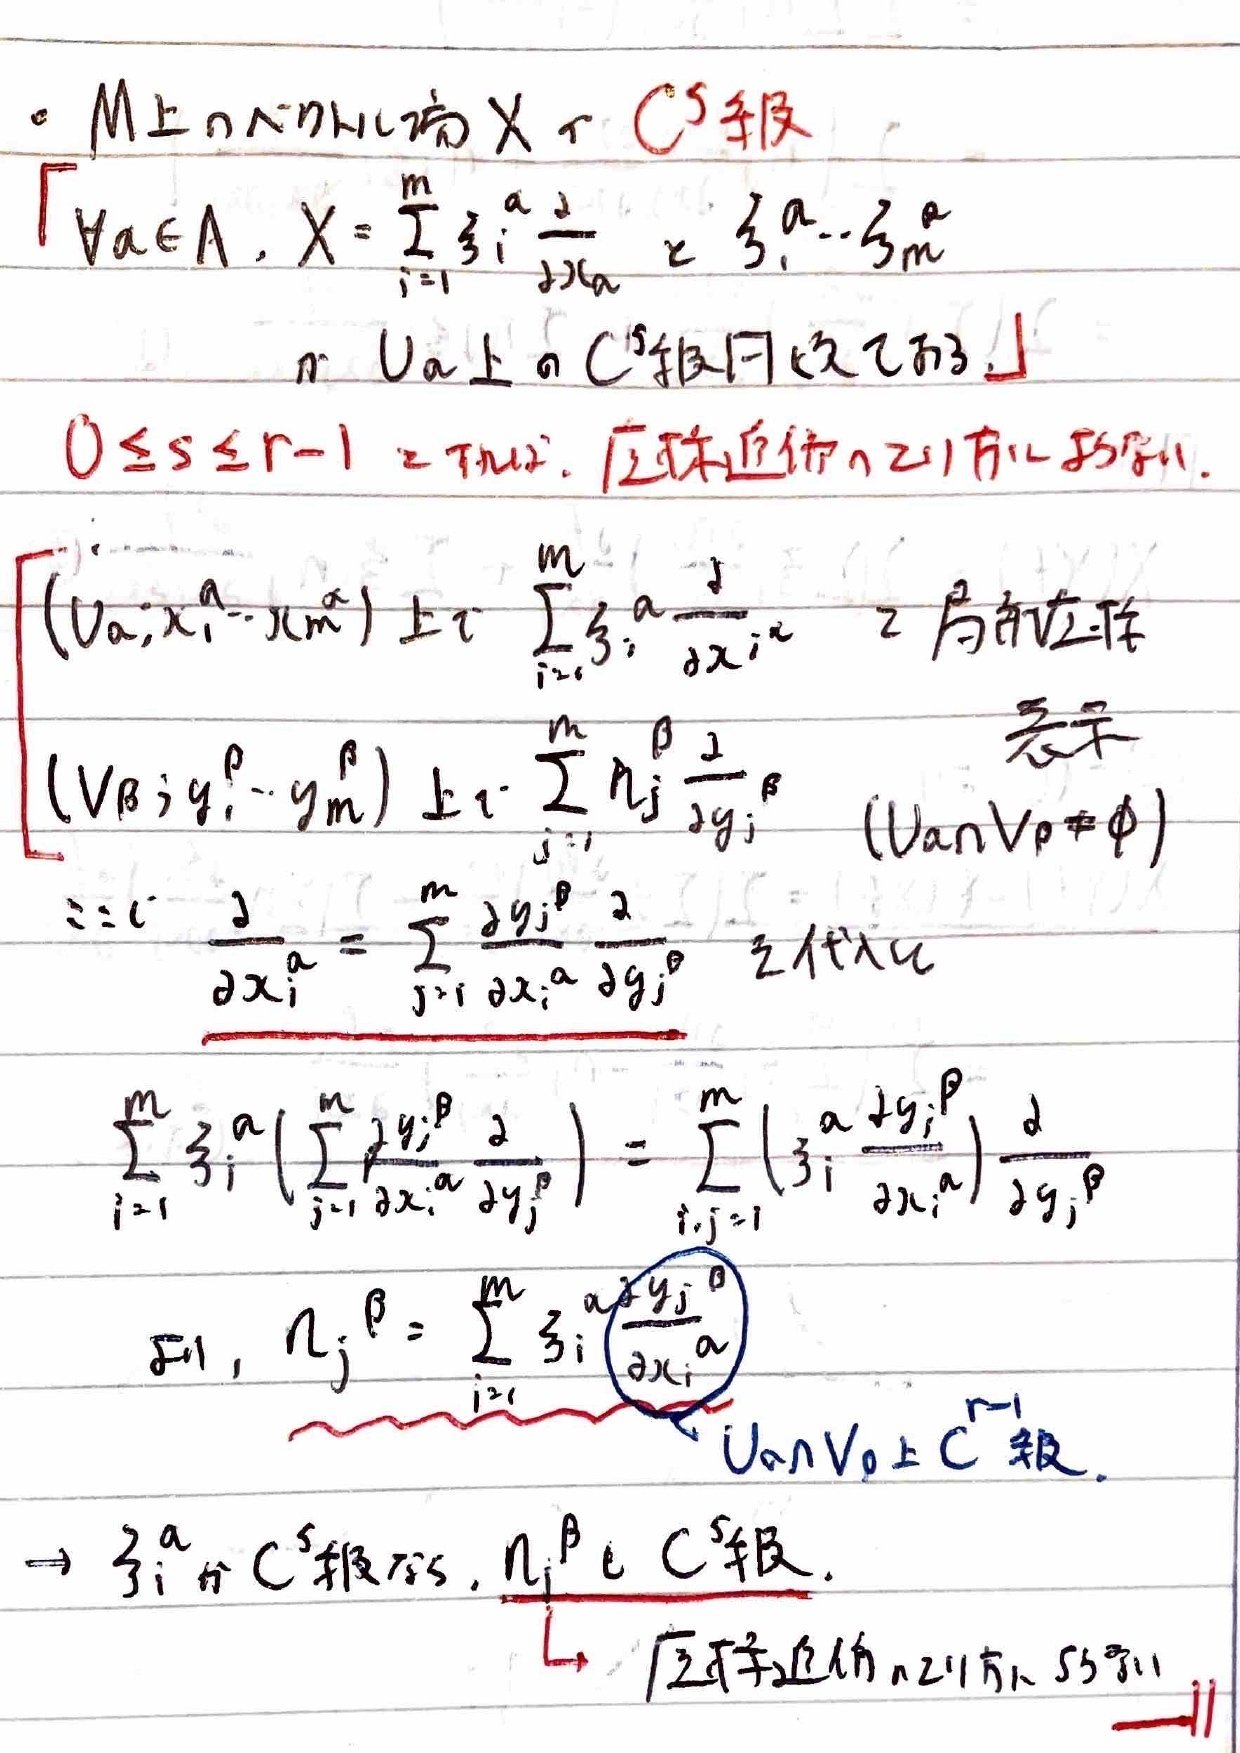 ・M上のベクトル場 X が C^s級
「∀α∈A, X = Σ_{i=1}^{m} ξ_i^α ∂/∂x_α と ξ_1^α … ξ_m^α
が Uα上の C^s級関数である.」
0 ≤ s ≤ r-1 とすれば, 座標近傍のとり方によらない.
(Uα; x_1^α … x_m^α) 上で Σ_{i=1}^{m} ξ_i^α ∂/∂x_i^α と局所座標
表示
(Vβ; y_1^β … y_m^β) 上で Σ_{j=1}^{m} η_j^β ∂/∂y_j^β (Uα∩Vβ ≠ φ)
ここで ∂/∂x_i^α = Σ_{j=1}^{m} ∂y_j^β/∂x_i^α ∂/∂y_j^β を代入し
Σ_{i=1}^{m} ξ_i^α ( Σ_{j=1}^{m} ∂y_j^β/∂x_i^α ∂/∂y_j^β ) = Σ_{i,j=1}^{m} ( ξ_i^α ∂y_j^β/∂x_i^α ) ∂/∂y_j^β
より, η_j^β = Σ_{i=1}^{m} ξ_i^α ∂y_j^β/∂x_i^α
Uα∩Vβ上 C^{r-1}級.
→ ξ_i^α が C^s級なら, η_j^β も C^s級.
↳ 座標近傍のとり方によらない